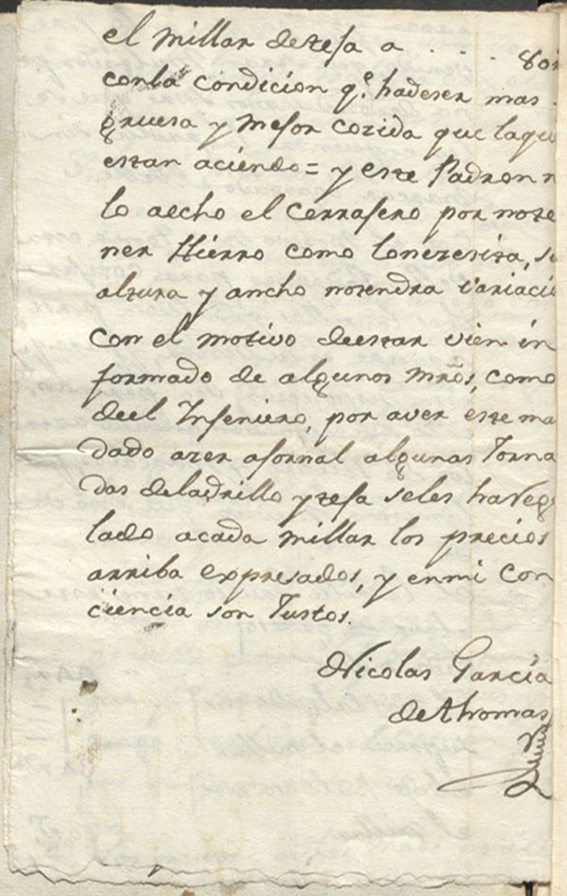 el millar de tefa a . . . 80
con la condicion q.e ha de ser mas
gruesa y mejor cozida que la que
estan aciendo = y este Padron n
lo a echo el Cerrafero por no te
ner Hierro como lo nezesita, su
altura y ancho no tendra variacio
con el motivo de estar vien in
formado de algunos mrõs, como
de el Infeniero, por aver este ma
dado azer a fornal algunas Torna
das de ladrillo y tefa se les ha Reg
lado a cada millar los precios
arriba expresados, y en mi Con
ciencia son Iustos.
Nicolas García
de Ahomas